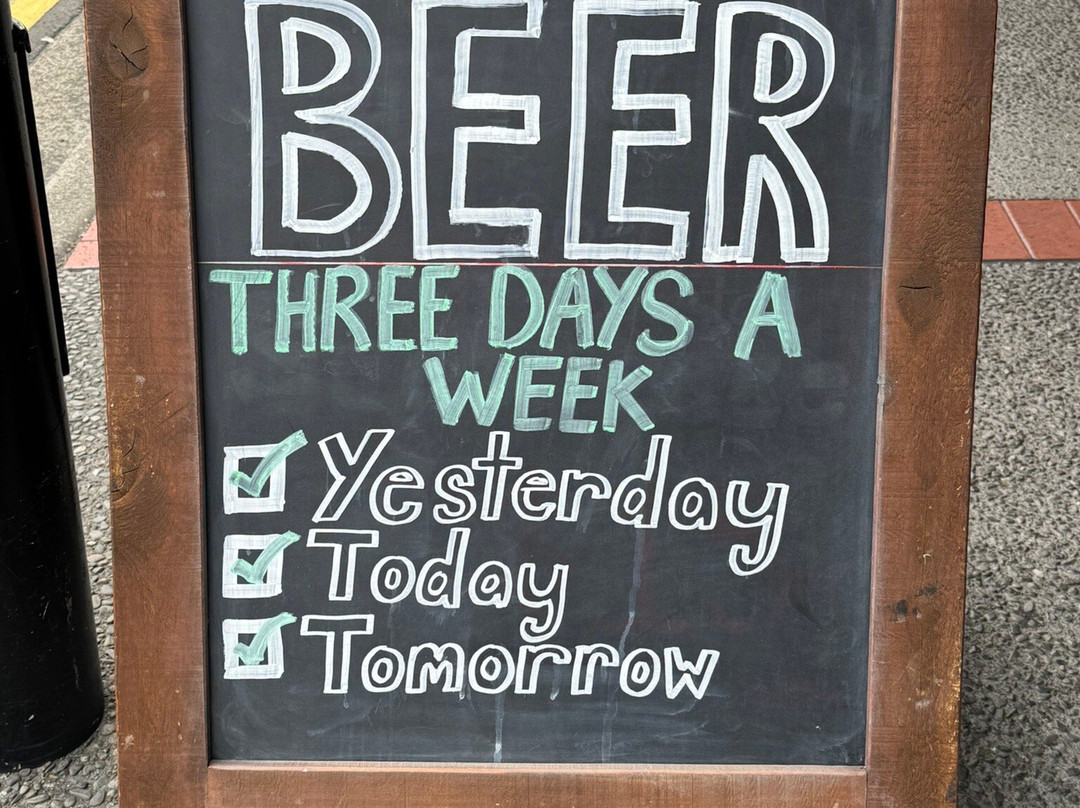 BEER
THREE DAYS A
WEEK
Yesterday
Today
Tomorrow